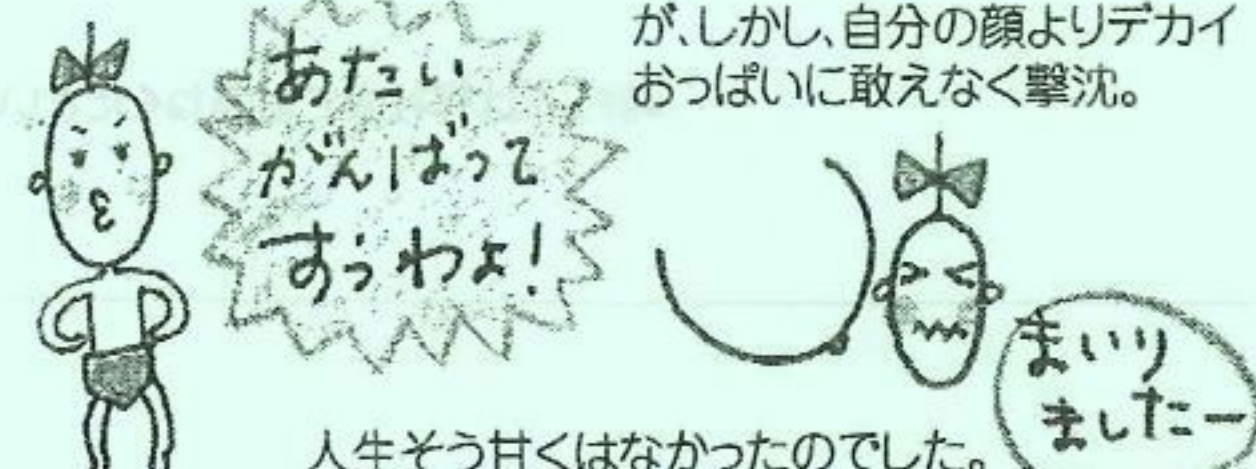 あたい
がんばって
すうわよ！
が、しかし、自分の顔よりデカイ
おっぱいに敢えなく撃沈。
まいり
ましたー
人生そう甘くはなかったのでした。